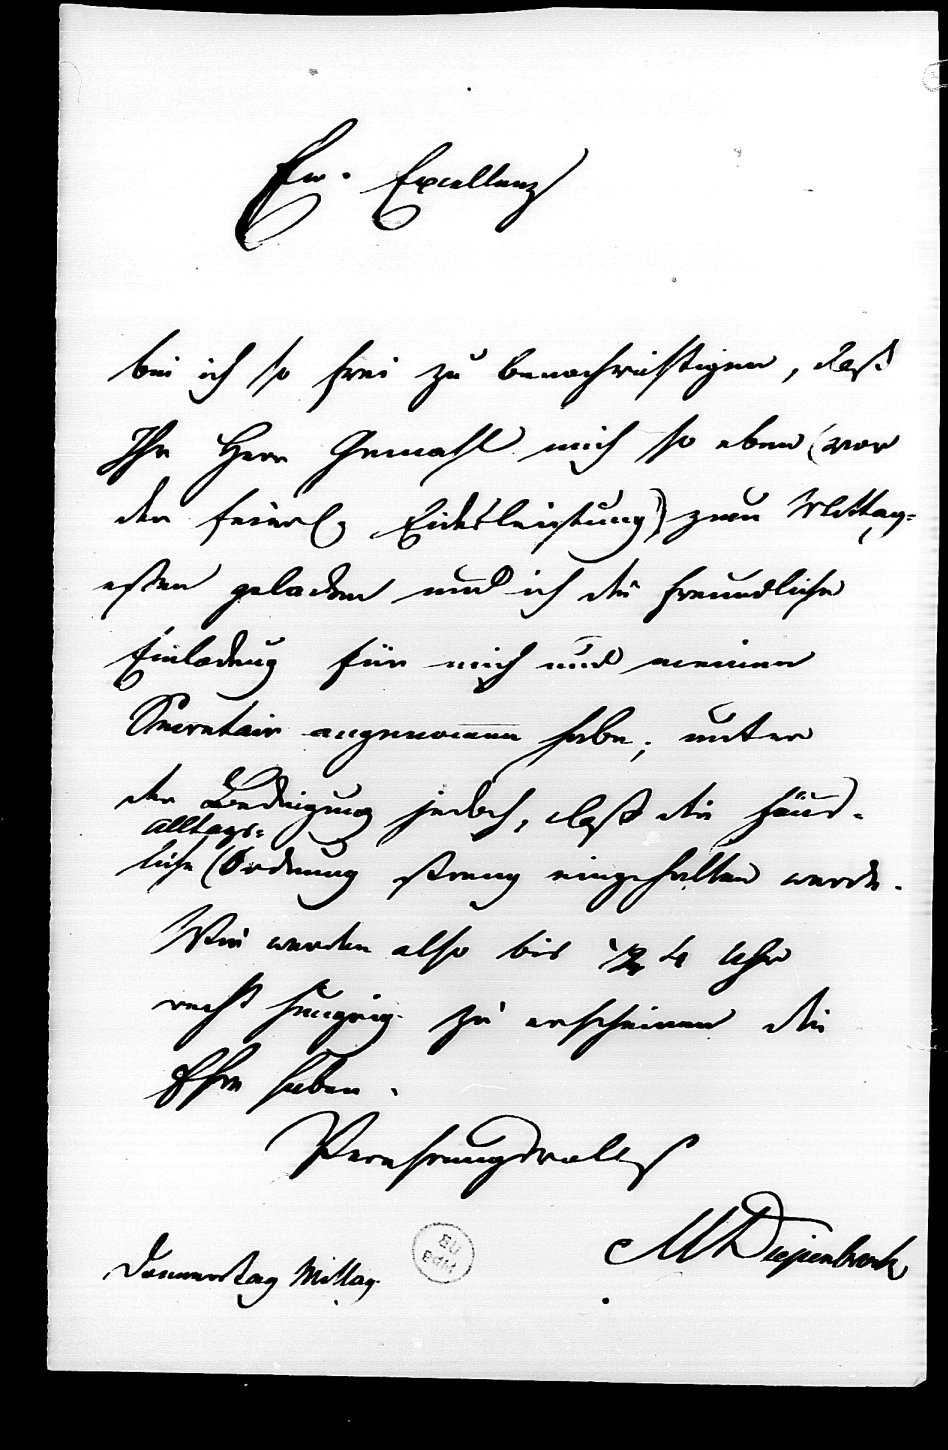 Ew. Excellenz
bin ich so frei zu benachrichtigen, daß
Ihr Herr Gemahl mich so eben (vor
der feierl. Eidesleistung) zum Mittag-
essen geladen und ich die freundliche
Einladung für mich und meinen
Secretair angenommen habe; unter
der Bedingung jedoch, daß die häus-
Alltags-
liche (Ordnung streng eingehalten werde.
Wir werden also bis ½ 4 Uhr
recht hungrig zu erscheinen die
Ehre haben.
Verehrungsvollst
MDiepenbrock
Donnerstag Mittag